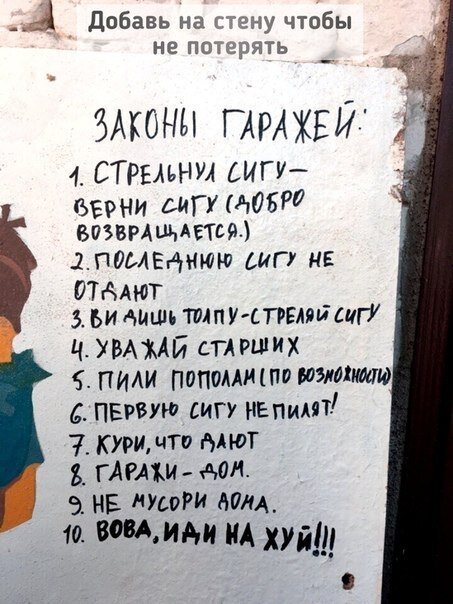 Добавь на стену чтобы
не потерять
ЗАКОНЫ ГАРАЖЕЙ:
1. СТРЕЛЬНУЛ СИГУ –
ВЕРНИ СИГУ (ДОБРО
ВОЗВРАЩАЕТСЯ.)
2. ПОСЛЕДНЮЮ СИГУ НЕ
ОТДАЮТ
3. ВИДИШЬ ТОЛПУ - СТРЕЛЯЙ СИГУ
4. УВАЖАЙ СТАРШИХ
5. ПИЛИ ПОПОЛАМ (ПО ВОЗМОЖНОСТИ)
6. ПЕРВУЮ СИГУ НЕ ПИЛЯТ!
7. КУРИ, ЧТО ДАЮТ
8. ГАРАЖИ – ДОМ.
9. НЕ МУСОРИ ДОМА.
10. ВОВА, ИДИ НА ХУЙ!!!